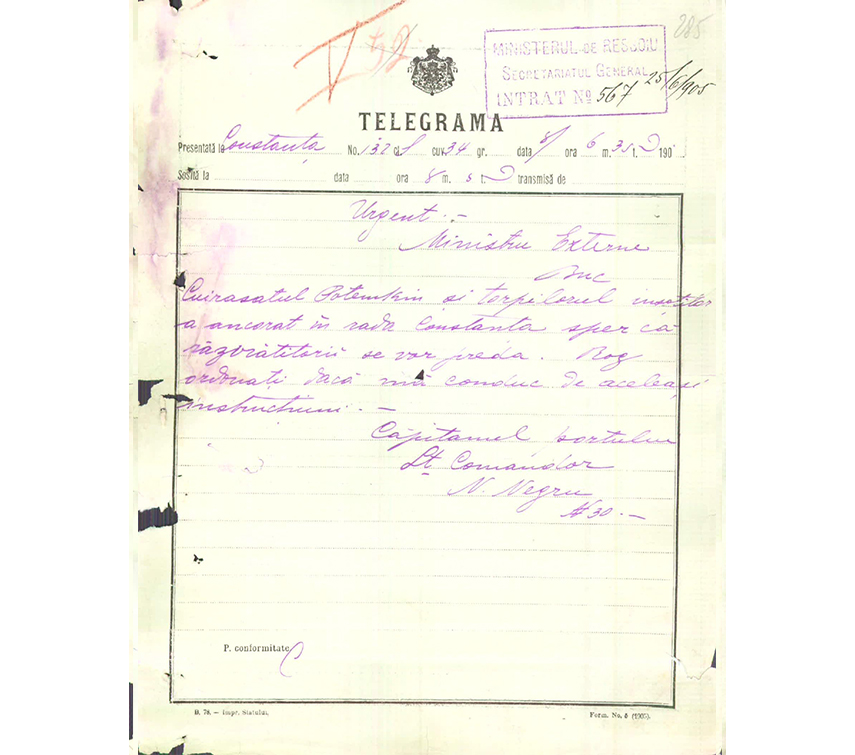 285
V 52
MINISTERUL DE RESBOIU
SECRETARIATUL GENERAL
INTRAT No 567 25/6/905
TELEGRAMA
Presentată la Constanța No. 132 cl cuv 34 gr. data 8/ ora 6 m. 35 t. D 190
Sosită la data ora 8 m. s t. D transmisă de
Urgent . –
Ministru Externe
Buc
Cuirasatul Potemkin și torpilorul însoțitor
a ancorat în rada Constanta sper că
răzvrătitorii se vor preda . Rog
ordonați dacă mă conduc de aceleași
instrucțiuni . –
Căpitanul portului
Lt Comandor
N. Negru
No 30 . –
P. conformitate
D. 78. — Impr. Statului.
Form. No. 5 (1905).